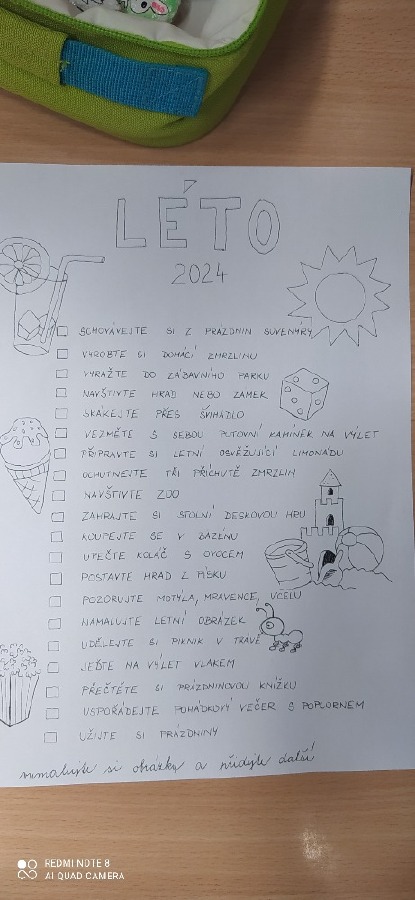 LÉTO
2024
SCHOVÁVEJTE SI Z PRÁZDNIN SUVENÝRY
VYROBTE SI DOMÁCÍ ZMRZLINU
VYRAŽTE DO ZÁBAVNÍHO PARKU
NAVŠTIVTE HRAD NEBO ZÁMEK
SKÁKEJTE PŘES ŠVIHADLO
VEZMĚTE S SEBOU PUTOVNÍ KAMÍNEK NA VÝLET
PŘIPRAVTE SI LETNÍ OSVĚŽUJÍCÍ LIMONÁDU
OCHUTNEJTE TŘI PŘÍCHUTĚ ZMRZLIN
NAVŠTIVTE ZOO
ZAHRAJTE SI STOLNÍ DESKOVOU HRU
KOUPEJTE SE V BAZÉNU
UPEČTE KOLÁČ S OVOCEM
POSTAVTE HRAD Z PÍSKU
POZORUJTE MOTÝLA, MRAVENCE, VČELU
NAMALUJTE LETNÍ OBRÁZEK
UDĚLEJTE SI PIKNIK V TRÁVĚ
JEĎTE NA VÝLET VLAKEM
PŘEČTĚTE SI PRÁZDNINOVOU KNÍŽKU
USPOŘÁDEJTE POHÁDKOVÝ VEČER S POPCORNEM
UŽIJTE SI PRÁZDNINY
namalujte si obrázky a přidejte další
REDMI NOTE 8
AI QUAD CAMERA